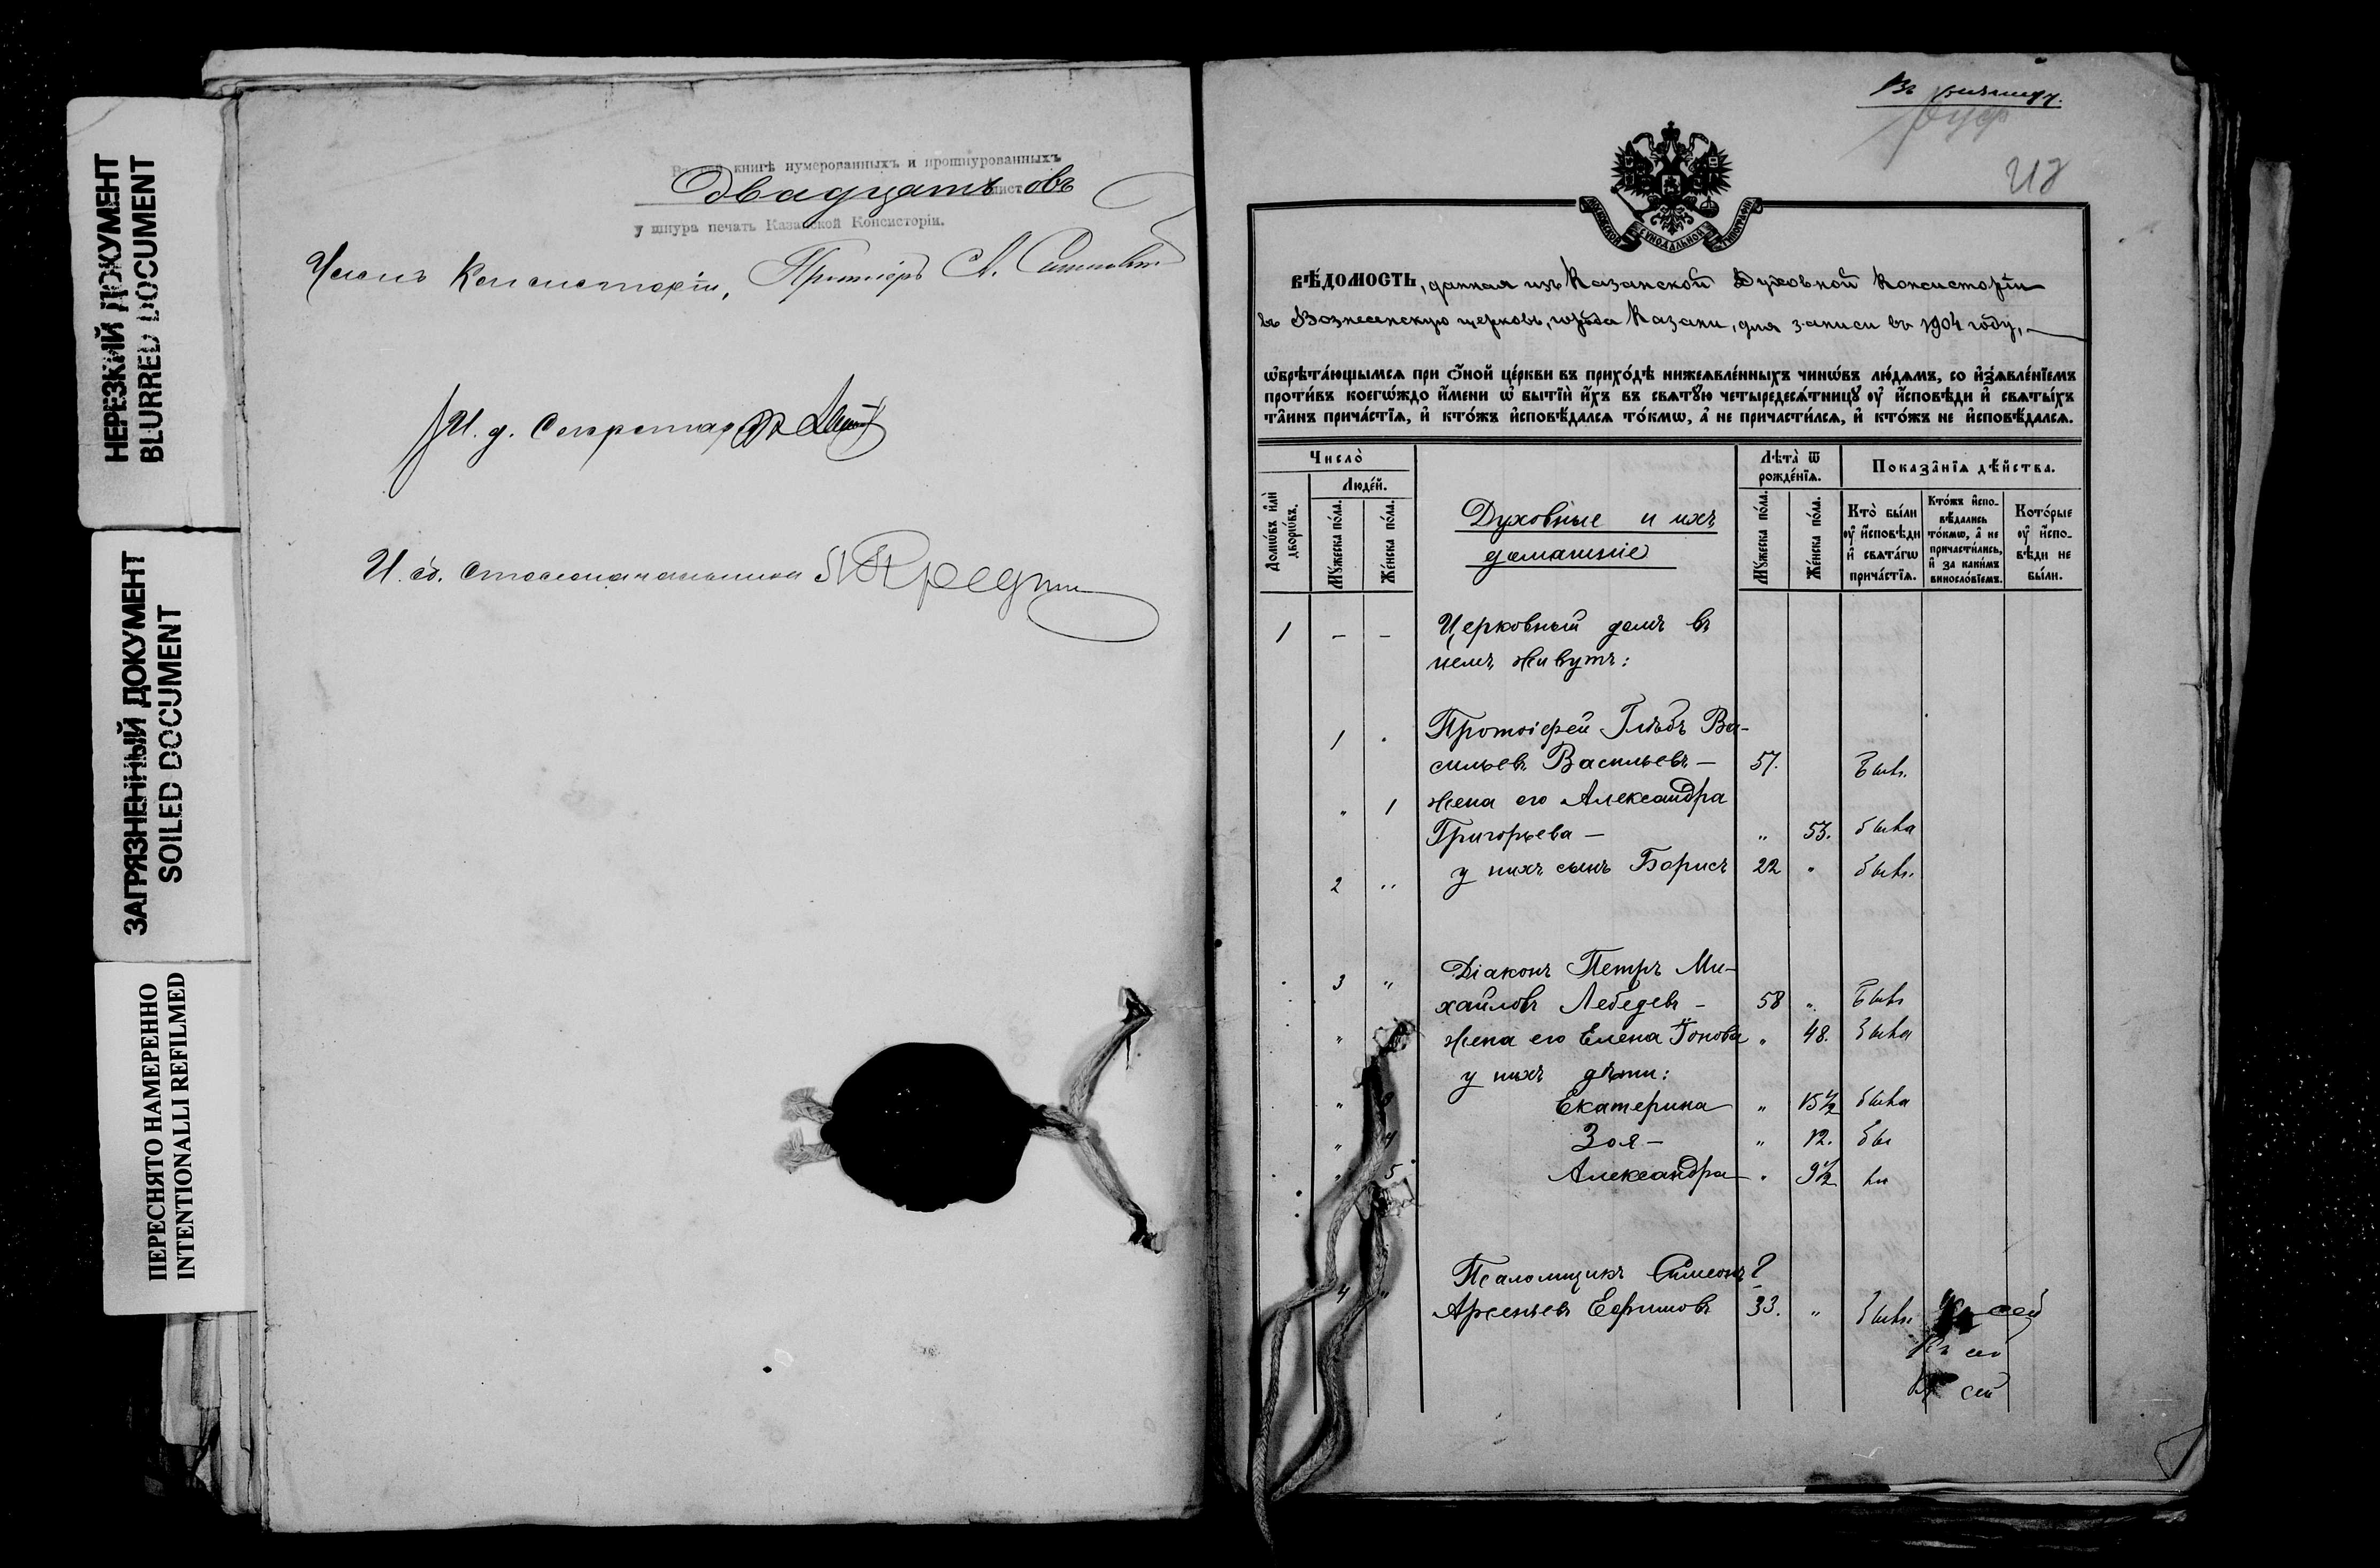 НЕРЕЗКИЙ ДОКУМЕНТ
BLURRED DOCUMENT
ЗАГРЯЗНЕННЫЙ ДОКУМЕНТ
SOILED DOCUMENT
ПЕРЕСНЯТО НАМЕРЕННО
INTENTIONALLI REFILMED
книгѣ нумерованныхъ и прошнурованныхъ
Двадцать листовъ
у шнура печать Казанской Консисторіи.
Членъ Консисторіи, Протоіерей А.
И. д. Секретаря
И. об. Столоначальника
МОСКОВСКОЙ СѴНОДАЛЬНОЙ ТИПОГРАФІИ
ВѢ́ДОМОСТЬ, данная изъ Казанской Духовной Консисторіи
въ Вознесенскую церковь, города Казани, для записи въ 1904 году,
ѡ҆брѣта́ющымсѧ при о҆́ной це́ркви въ прихо́дѣ нижеꙗвле́нныхъ чинѡ́въ лю́дѧмъ, со и҆з̾ѧвле́нїемъ
проти́въ коегѡ́ждо и҆́мени ѡ҆ бытїѝ и҆́хъ въ свѧтꙋ́ю четыредесѧ́тницꙋ ᲂу҆ и҆́сповѣди и҆ свѧты́хъ
та̑инъ прича́стїѧ, и҆ кто́жъ и҆сповѣ́далсѧ то́кмѡ, а҆ не причасти́лсѧ, и҆ кто́жъ не и҆сповѣ́далсѧ.
Число̀
Домѡ́въ и҆лѝ дворѡ́въ.
Люде́й.
Мꙋ́жеска по́ла.
Же́нска по́ла.
Духовные и ихъ
домашніе
Лѣ́та ѿ рожде́нїѧ.
Мꙋ́жеска по́ла.
Же́нска по́ла.
Показа̑нїѧ дѣ́йства.
Кто̀ бы́ли ᲂу҆ и҆́сповѣди и҆ свѧта́гѡ прича́стїѧ.
Кто́жъ и҆спо-
вѣ́дались то́кмѡ, а҆ не причасти́лись, и҆ за каки́мъ виносло́вїемъ.
Кото́рые ᲂу҆ и҆́спо-
вѣди не бы́ли.
1 – – Церковный домъ въ
немъ живутъ:
1 Протоіерей Глѣбъ Ва-
сильевъ Васильевъ – 57. Былъ.
" 1 Жена его Александра
Григорьева – " 53. была
2 " у нихъ сынъ Борисъ 22 " былъ.
3 " Діаконъ Петръ Ми-
хайловъ Лебедевъ – 58 " Былъ
" Жена его Елена Іонова " 48. была
у нихъ дѣти:
" Екатерина " 15 1/2 была
" 4 Зоя – " 12. бы
5 Александра " 9 1/2 ла
Псаломщикъ Симеонъ?
4 " Арсеньевъ Ефимовъ 33. " былъ. сей
сей
сей